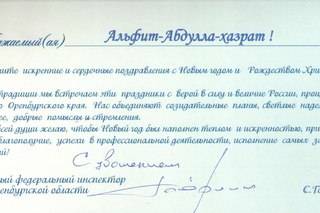 жаемый(ая) Альфит-Абдулла-хазрат !
ите искренние и сердечные поздравления с Новым годом и Рождеством Хри
традиции мы встречаем эти праздники с верой в силу и величие России, проц
о Оренбургского края. Нас объединяют созидательные планы, светлые надеж
е, добрые помыслы и стремления.
сей души желаю, чтобы Новый год был наполнен теплом и искренностью, при
благополучие, успехи в профессиональной деятельности, исполнение самых за
й!
С уважением
ый федеральный инспектор
ренбургской области С.Г